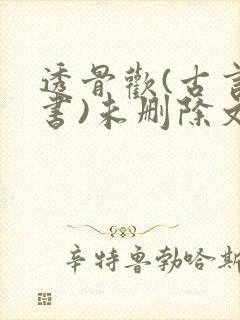 透骨歡(古言
書)未刪除文
辛特魯勃哈斯